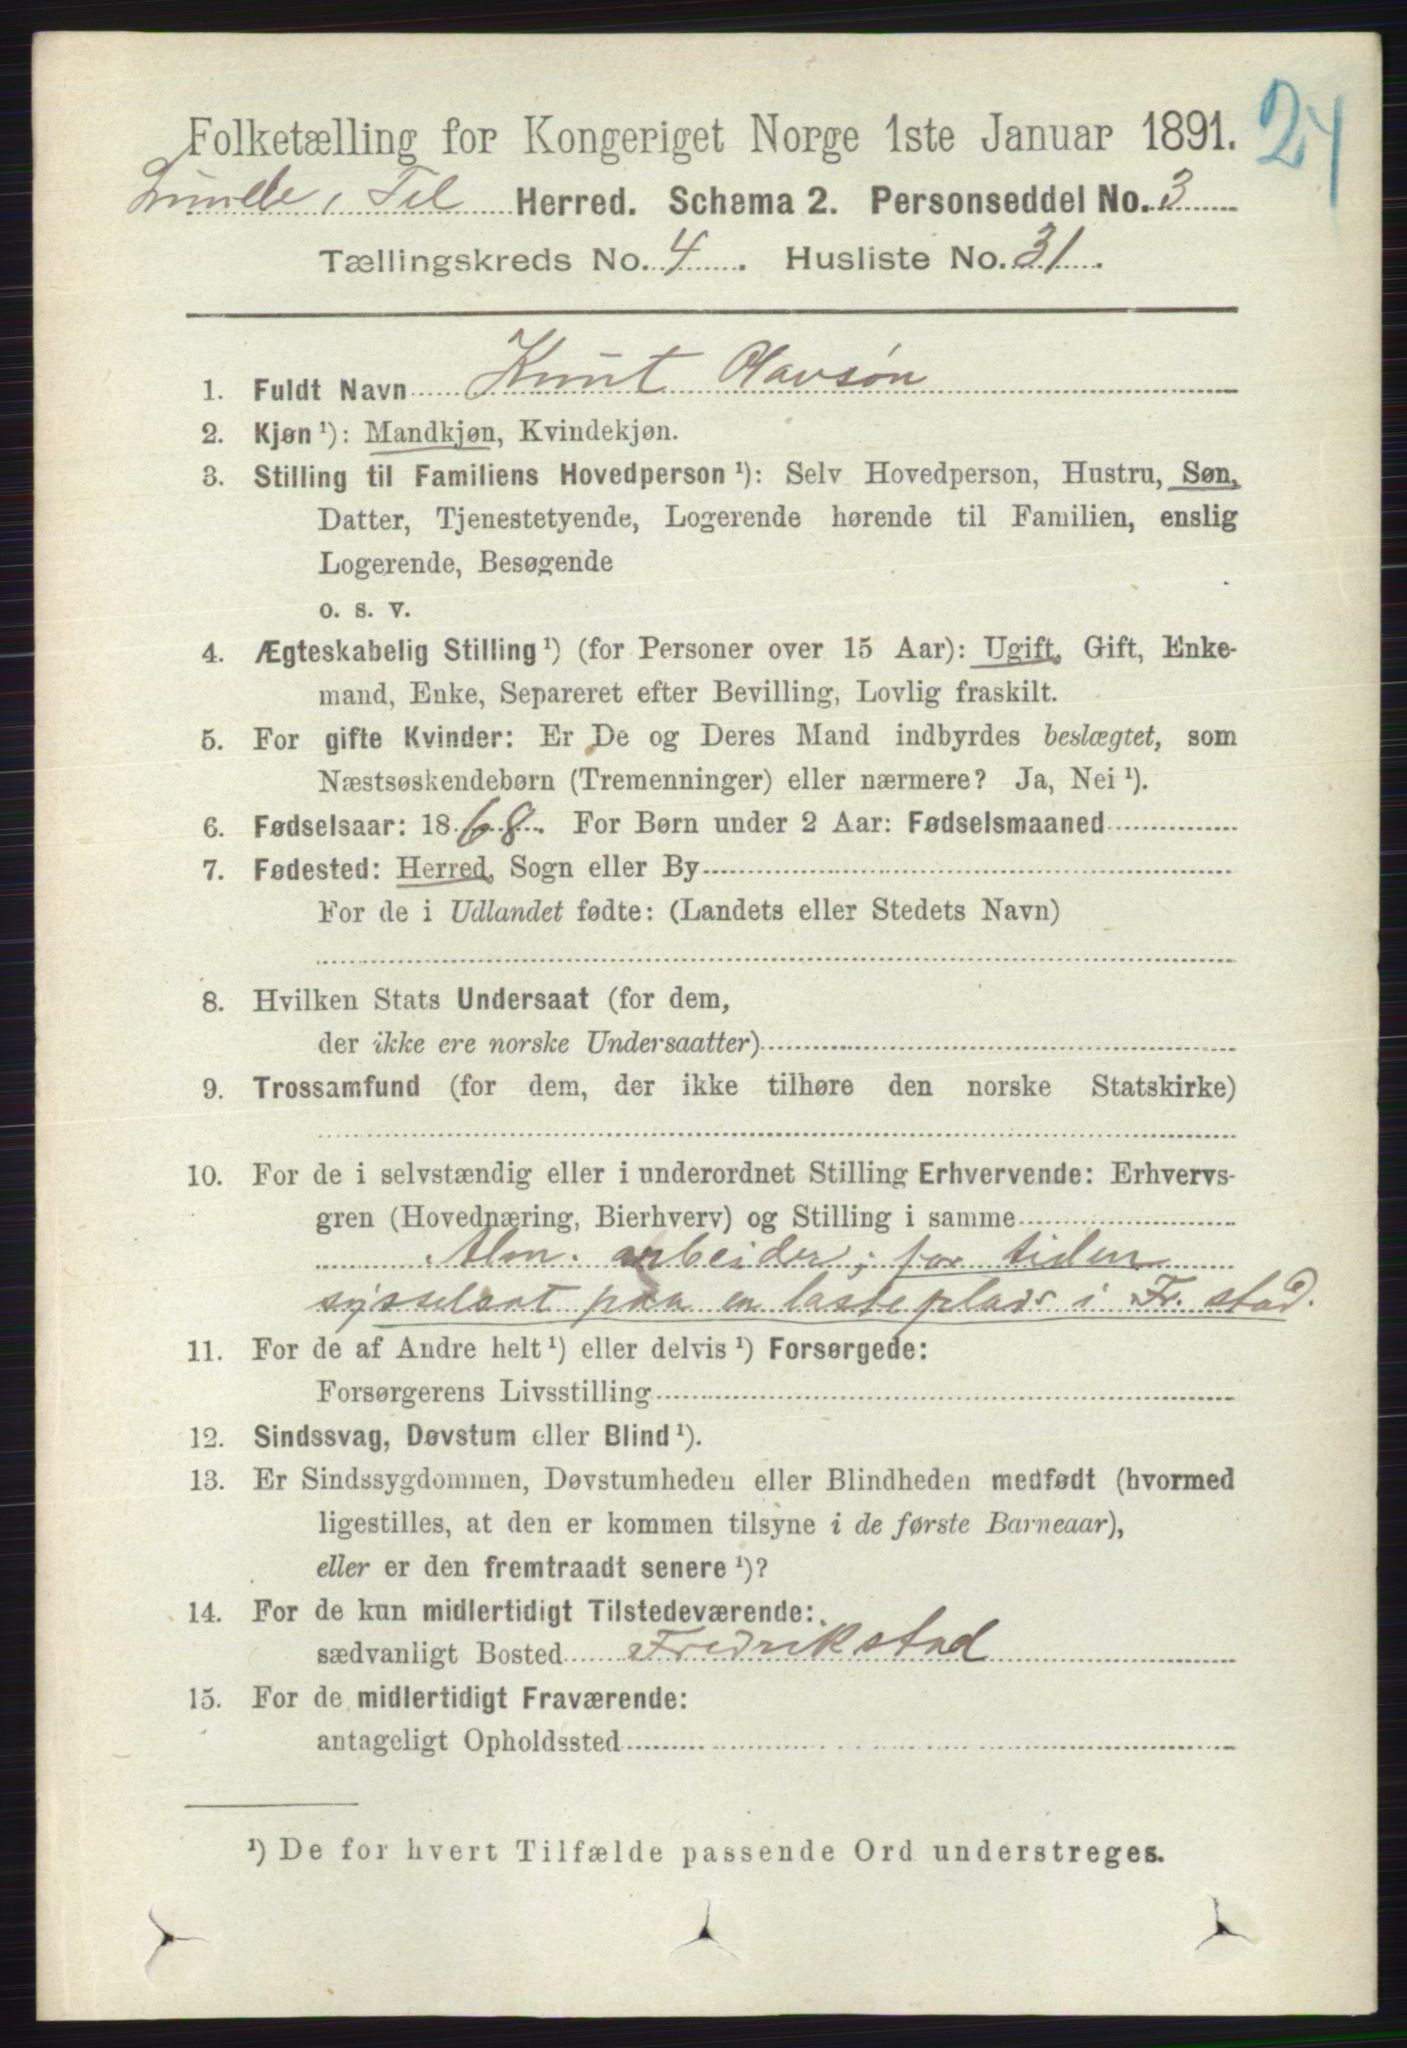 Folketælling for Kongeriget Norge 1ste Januar 1891. 24
Lunde i Tel Herred. Schema 2. Personseddel No. 3
Tællingskreds No. 4. Husliste No. 31.
1. Fuldt Navn Knut Olavsøn
2. Kjøn ¹): Mandkjøn, Kvindekjøn.
3. Stilling til Familiens Hovedperson ¹): Selv Hovedperson, Hustru, Søn,
Datter, Tjenestetyende, Logerende hørende til Familien, enslig
Logerende, Besøgende
o. s. v.
4. Ægteskabelig Stilling ¹) (for Personer over 15 Aar): Ugift, Gift, Enke-
mand, Enke, Separeret efter Bevilling, Lovlig fraskilt.
5. For gifte Kvinder: Er De og Deres Mand indbyrdes beslægtet, som
Næstsøskendebørn (Tremenninger) eller nærmere? Ja, Nei ¹).
6. Fødselsaar: 1868. For Børn under 2 Aar: Fødselsmaaned
7. Fødested: Herred, Sogn eller By
For de i Udlandet fødte: (Landets eller Stedets Navn)
8. Hvilken Stats Undersaat (for dem,
der ikke ere norske Undersaatter)
9. Trossamfund (for dem, der ikke tilhøre den norske Statskirke)
10. For de i selvstændig eller i underordnet Stilling Erhvervende: Erhvervs-
gren (Hovednæring, Bierhverv) og Stilling i samme
Alm. arbeider; for tiden
sysselsat paa en lasteplads i Fr. stad.
11. For de af Andre helt ¹) eller delvis ¹) Forsørgede:
Forsørgerens Livsstilling
12. Sindssvag, Døvstum eller Blind ¹).
13. Er Sindssygdommen, Døvstumheden eller Blindheden medfødt (hvormed
ligestilles, at den er kommen tilsyne i de første Barneaar),
eller er den fremtraadt senere ¹)?
14. For de kun midlertidigt Tilstedeværende:
sædvanligt Bosted Fredrikstad
15. For de midlertidigt Fraværende:
antageligt Opholdssted
¹) De for hvert Tilfælde passende Ord understreges.